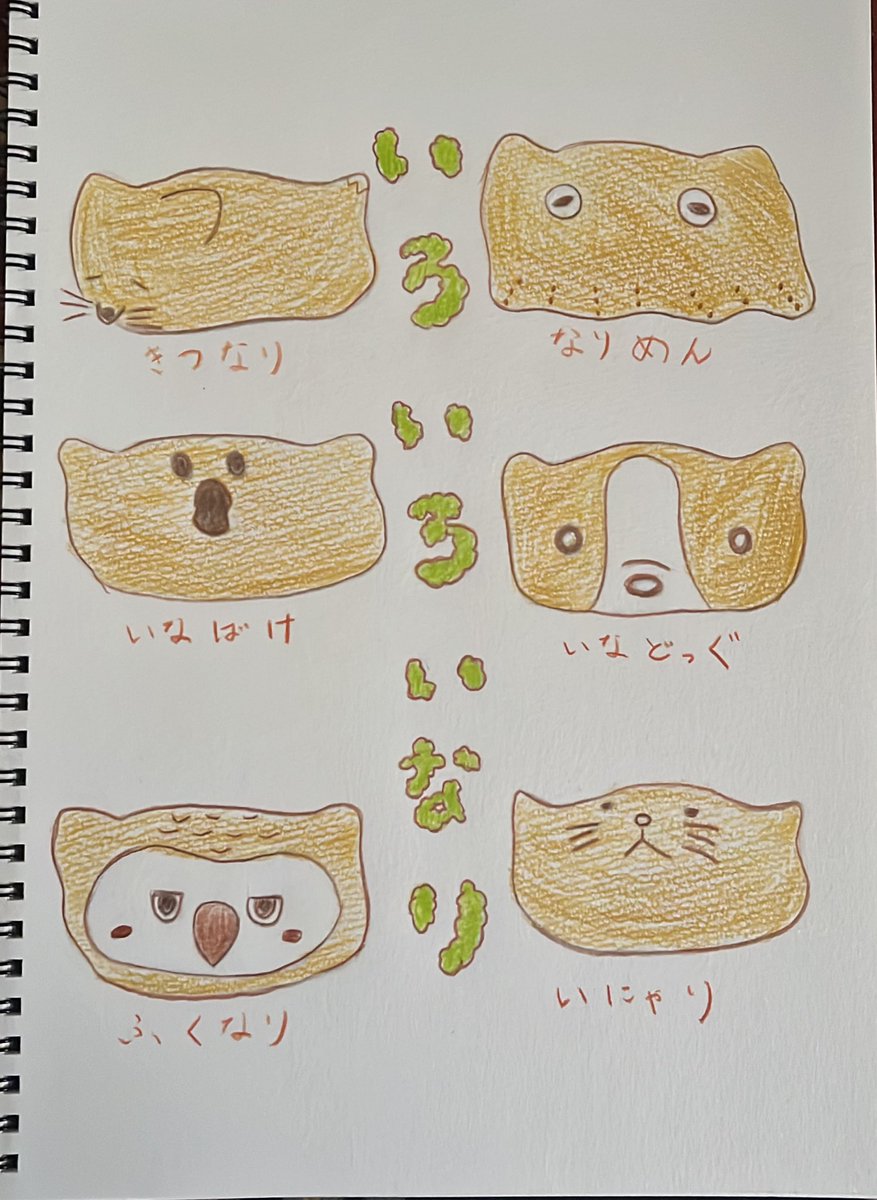 いろいろいなり
きつなり
なりめん
いなばけ
いなどっぐ
ふくなり
いにゃり